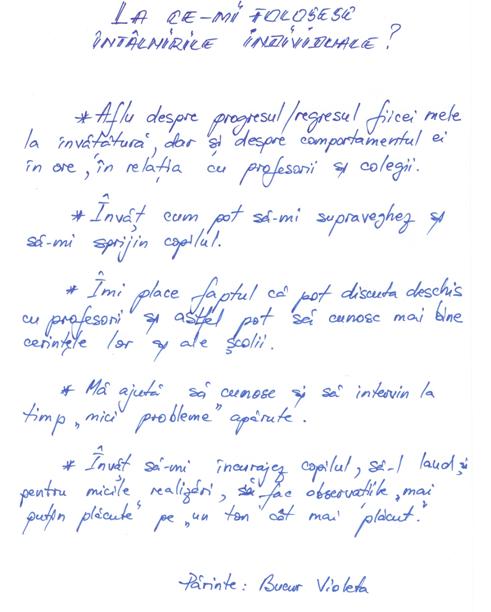 LA CE-MI FOLOSESC
ÎNTÂLNIRILE INDIVIDUALE?
* Aflu despre progresul/regresul fiicei mele
la învățătură, dar și despre comportamentul ei
în ore, în relația cu profesorii și colegii.
* Învăț cum pot să-mi supraveghez și
să-mi sprijin copilul.
* Îmi place faptul că pot discuta deschis
cu profesorii și astfel pot să cunosc mai bine
cerințele lor și ale școlii.
* Mă ajută să cunosc și să intervin la
timp „mici probleme" apărute.
* Învăț să-mi încurajez copilul, să-l laud și
pentru micile realizări, să fac observațiile „mai
puțin plăcute" pe „un ton cât mai plăcut."
Părinte: Bucur Violeta